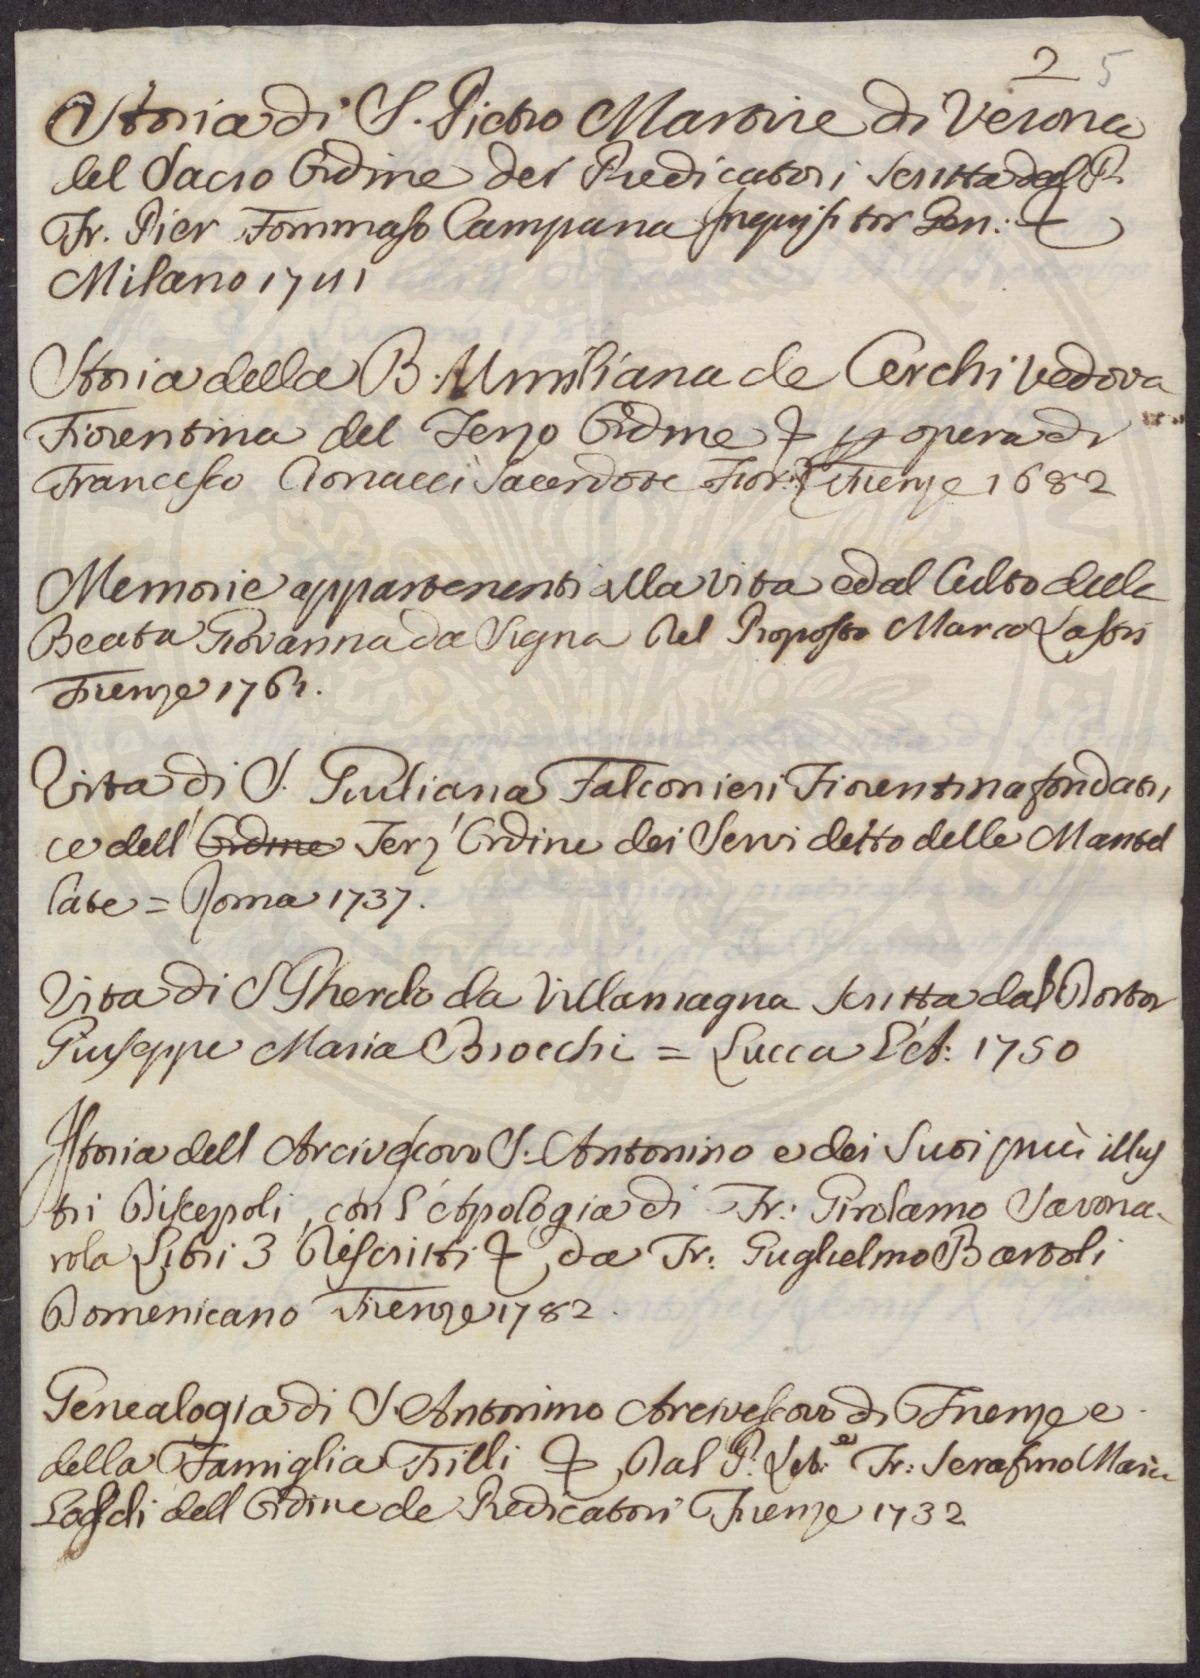 2 5
Storia di S. Pietro Martire di Verona
del Sacro Ordine dei Predicatori scritta dal P.
Fr. Pier Tommaso Campana Inquisitor Gen:
Milano 1741
Storia della B. Umiliana de Cerchi vedova
Fiorentina del Terzo Ordine & opera di
Francesco Cionacci Sacerdote Fior: Firenze 1682
Memorie appartenenti alla vita ed al Culto della
Beata Giovanna da Signa Del Proposto Marco Lastri
Firenze 1761.
Vita di S. Giuliana Falconieri Fiorentina fondatri
ce dell' Ordine Terz' Ordine dei Servi detto delle Mantel
late = Roma 1737.
Vita di S Gherdo da Villamagna scritta dal Dottor
Giuseppe Maria Brocchi = Lucca 1750
Istoria dell Arcivescovo S. Antonino e dei suoi più illus
tri Discepoli, con l'Apologia di Fr: Girolamo Savona-
rola Libri 3 Descritti & da Fr: Guglielmo Bartoli
Domenicano Firenze 1782.
Genealogia di S. Antonino Arcivescovo di Firenze e
della Famiglia Filli & Dal P. Let:e Fr: Serafino Maria
Loddi dell Ordine de Predicatori Firenze 1732